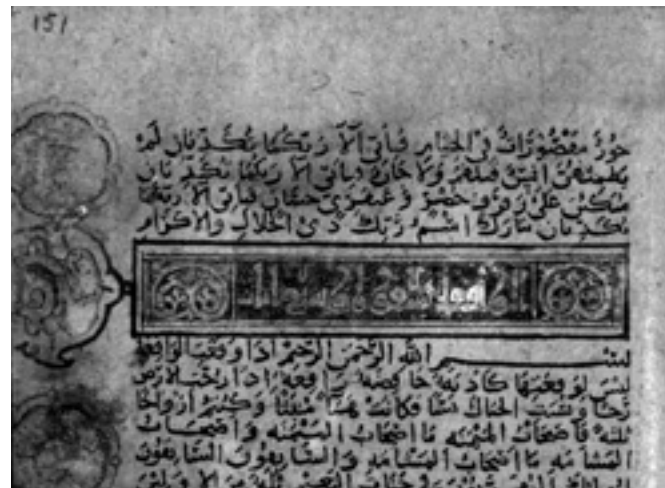 151
حور مقصورات في الخيام فبأي آلاء ربكما تكذبان لم
يطمثهن إنس قبلهم ولا جان فبأي آلاء ربكما تكذبان
متكئين على رفرف خضر وعبقري حسان فبأي آلاء ربكما
تكذبان تبارك اسم ربك ذي الجلال والإكرام
بسم الله الرحمن الرحيم إذا وقعت الواقعة
ليس لوقعتها كاذبة خافضة رافعة إذا رجت الأرض
رجا وبست الجبال بسا فكانت هباء منبثا وكنتم أزواجا
ثلاثة فأصحاب الميمنة ما أصحاب الميمنة وأصحاب
المشأمة ما أصحاب المشأمة والسابقون السابقون